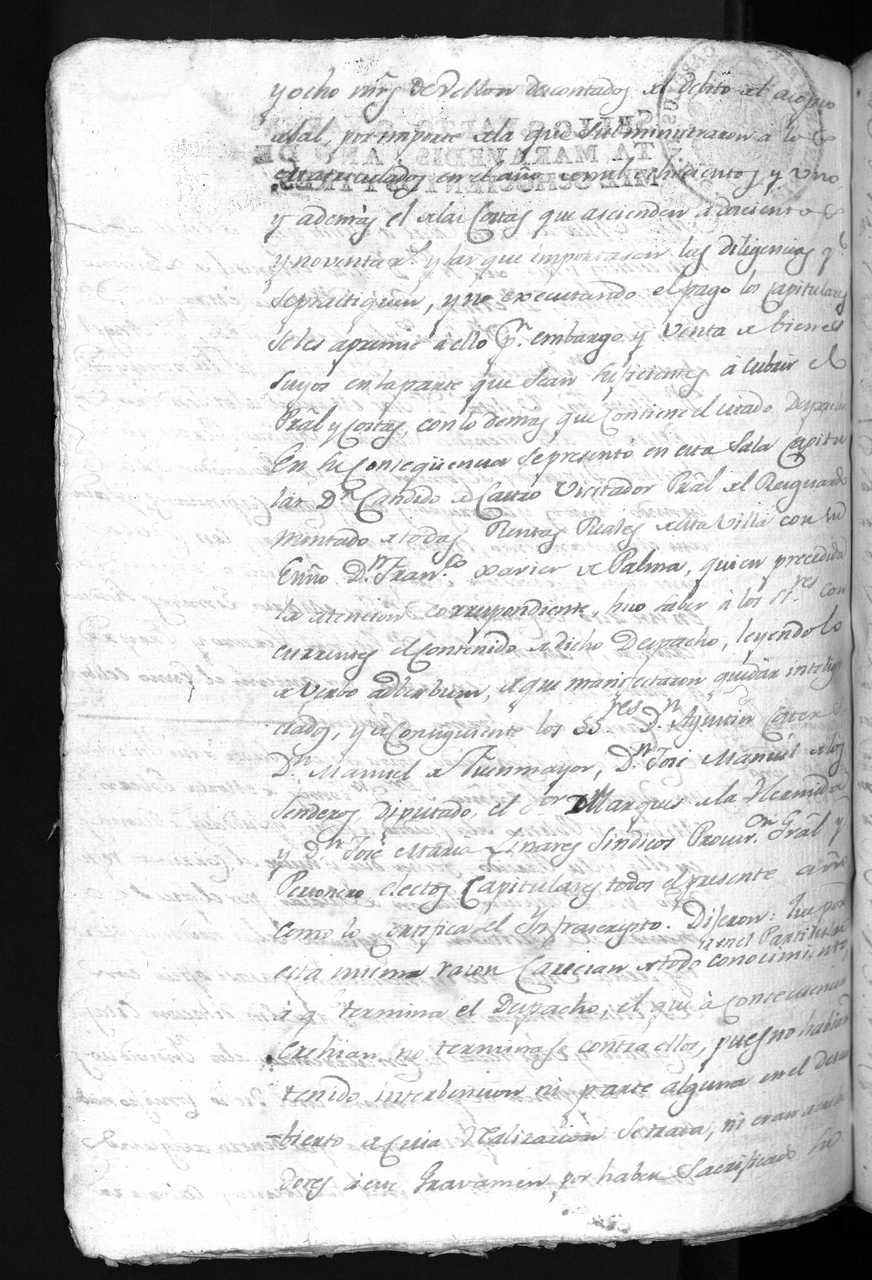 y ocho mrs de Vellon descontados el debito al acopio
de sal, por importe de la que Suministraron a los
Matriculados en el año de mil ochocientos y Uno
y además el de las Costas que ascienden a docientos
y noventa rs. y las que importasen las diligencias q.e
sepractiquen, y no executando el pago los Capitulares
seles apremie àello pr. embargo y Venta de bienes
suyos en laparte que Sean suficientes à cubrir el
Pral y Costas, con lo demás que Contiene el citado Despacho
En su Conseqüencia sepresentó en esta Sala Capitu
lar Dn Candido de Castro Visitador Pral del Resguardo
Montado de todas Rentas Reales de esta Villa con su
Esño Dn. Franco. Xavier de Palma, quien precedida
la atencion correspondiente, hizo saber à los SSres Con
currentes el Contenido de dicho Despacho, leyendolo
de Verbo adberbum, de que manifestaron quedar inteligen
ciados, y de Consiguiente los SSres Dn Agustin
Dn Manuel de Fuenmayor, Dn José Manuel de los
Senderos Diputado, el Sor Marques de la
y Dn José Maria Linares Sindicos Procuror. Gral y
Personero electos Capitulares todos el presente año
como lo certifica el Infrascripto. Dijeron: Que por
esta misma razon Carecian de todo conocimiento, en el Particular
à q. termina el Despacho, el que à Consecuencia
Crehian no terminase contra ellos, pues no habian
tenido interbencion ni parte alguna en el descu
bierto de Cuia realizacion Setrata, ni eran acree
dores à ese Gravamen por haber Sacrificado su